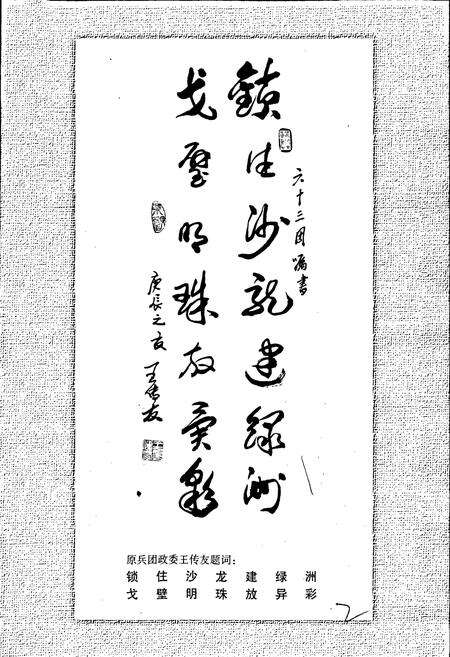 六十三团嘱书
锁住沙龙建绿洲
戈壁明珠放异彩
庚辰之夏 王传友
原兵团政委王传友题词:
锁住沙龙建绿洲
戈壁明珠放异彩